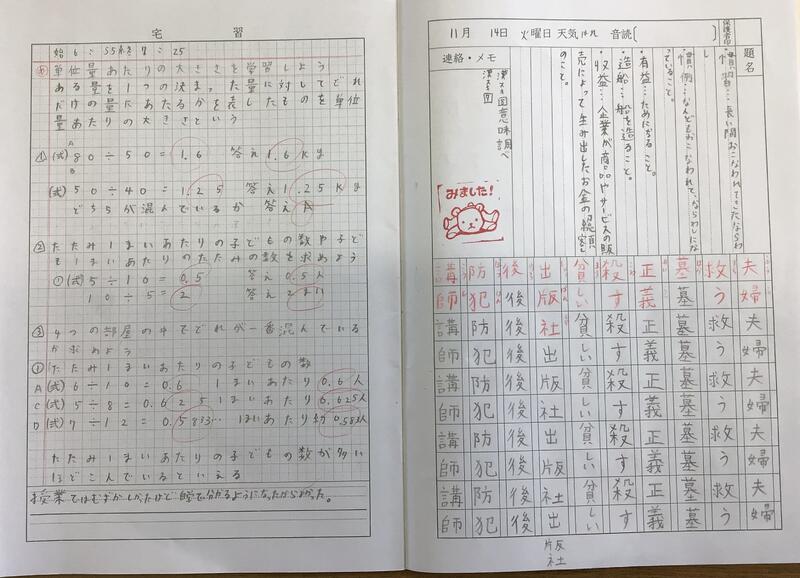 宅習
始6:55終7:25
単位量あたりの大きさを学習しよう
ある量を1つの決まった量に対してどれ
だけの量にあたるかを表したものを単位
量あたりの大きさという
① A (式) 80÷50=1.6 答え1.6Kg
B (式) 50÷40=1.25 答え1.25Kg
どちらが混んでいるか 答え A
② たたみ1まいあたりの子どもの数や子ど
も1まいあたりのたたみの数を求めよう
① (式) 5÷10=0.5 答え0.5人
10÷5=2 答え2まい
③ 4つの部屋の中でどれが一番混んでいる
か求めよう
① たたみ1まいあたりの子どもの数
A (式) 6÷10=0.6 1まいあたり0.6人
C (式) 5÷8=0.625 1まいあたり0.625人
D (式) 7÷12=0.5833… 1まいあたり約0.583人
たたみ1まいあたりの子どもの数が多い
ほどこんでいるといえる
授業ではむずかしかったけど自学で分かるようになったからよかった。
11月 14日 火曜日 天気はれ 音読〔 〕
保護者印
題名
連絡・メモ
・慣習…長い間おこなわれてきたならわ
し
・慣例…なんどもおこなわれて、ならわしにな
っていること。
・有益…ためになること。
・造船…船を造ること。
・収益…企業が商品やサービスの販
売によって生み出したお金の総額
のこと。
漢ス回意味調べ
漢ス回
みました!
夫婦夫婦夫婦夫婦夫婦
救う救う救う救う救う
墓墓墓墓墓墓墓墓墓墓
正義正義正義正義正義
殺す殺す殺す殺す殺す
貧しい貧しい貧しい貧しい貧しい
出版社出版社出版社出
後後後後後後後後後後
防犯防犯防犯防犯防犯
講師講師講師講師講師
版
社